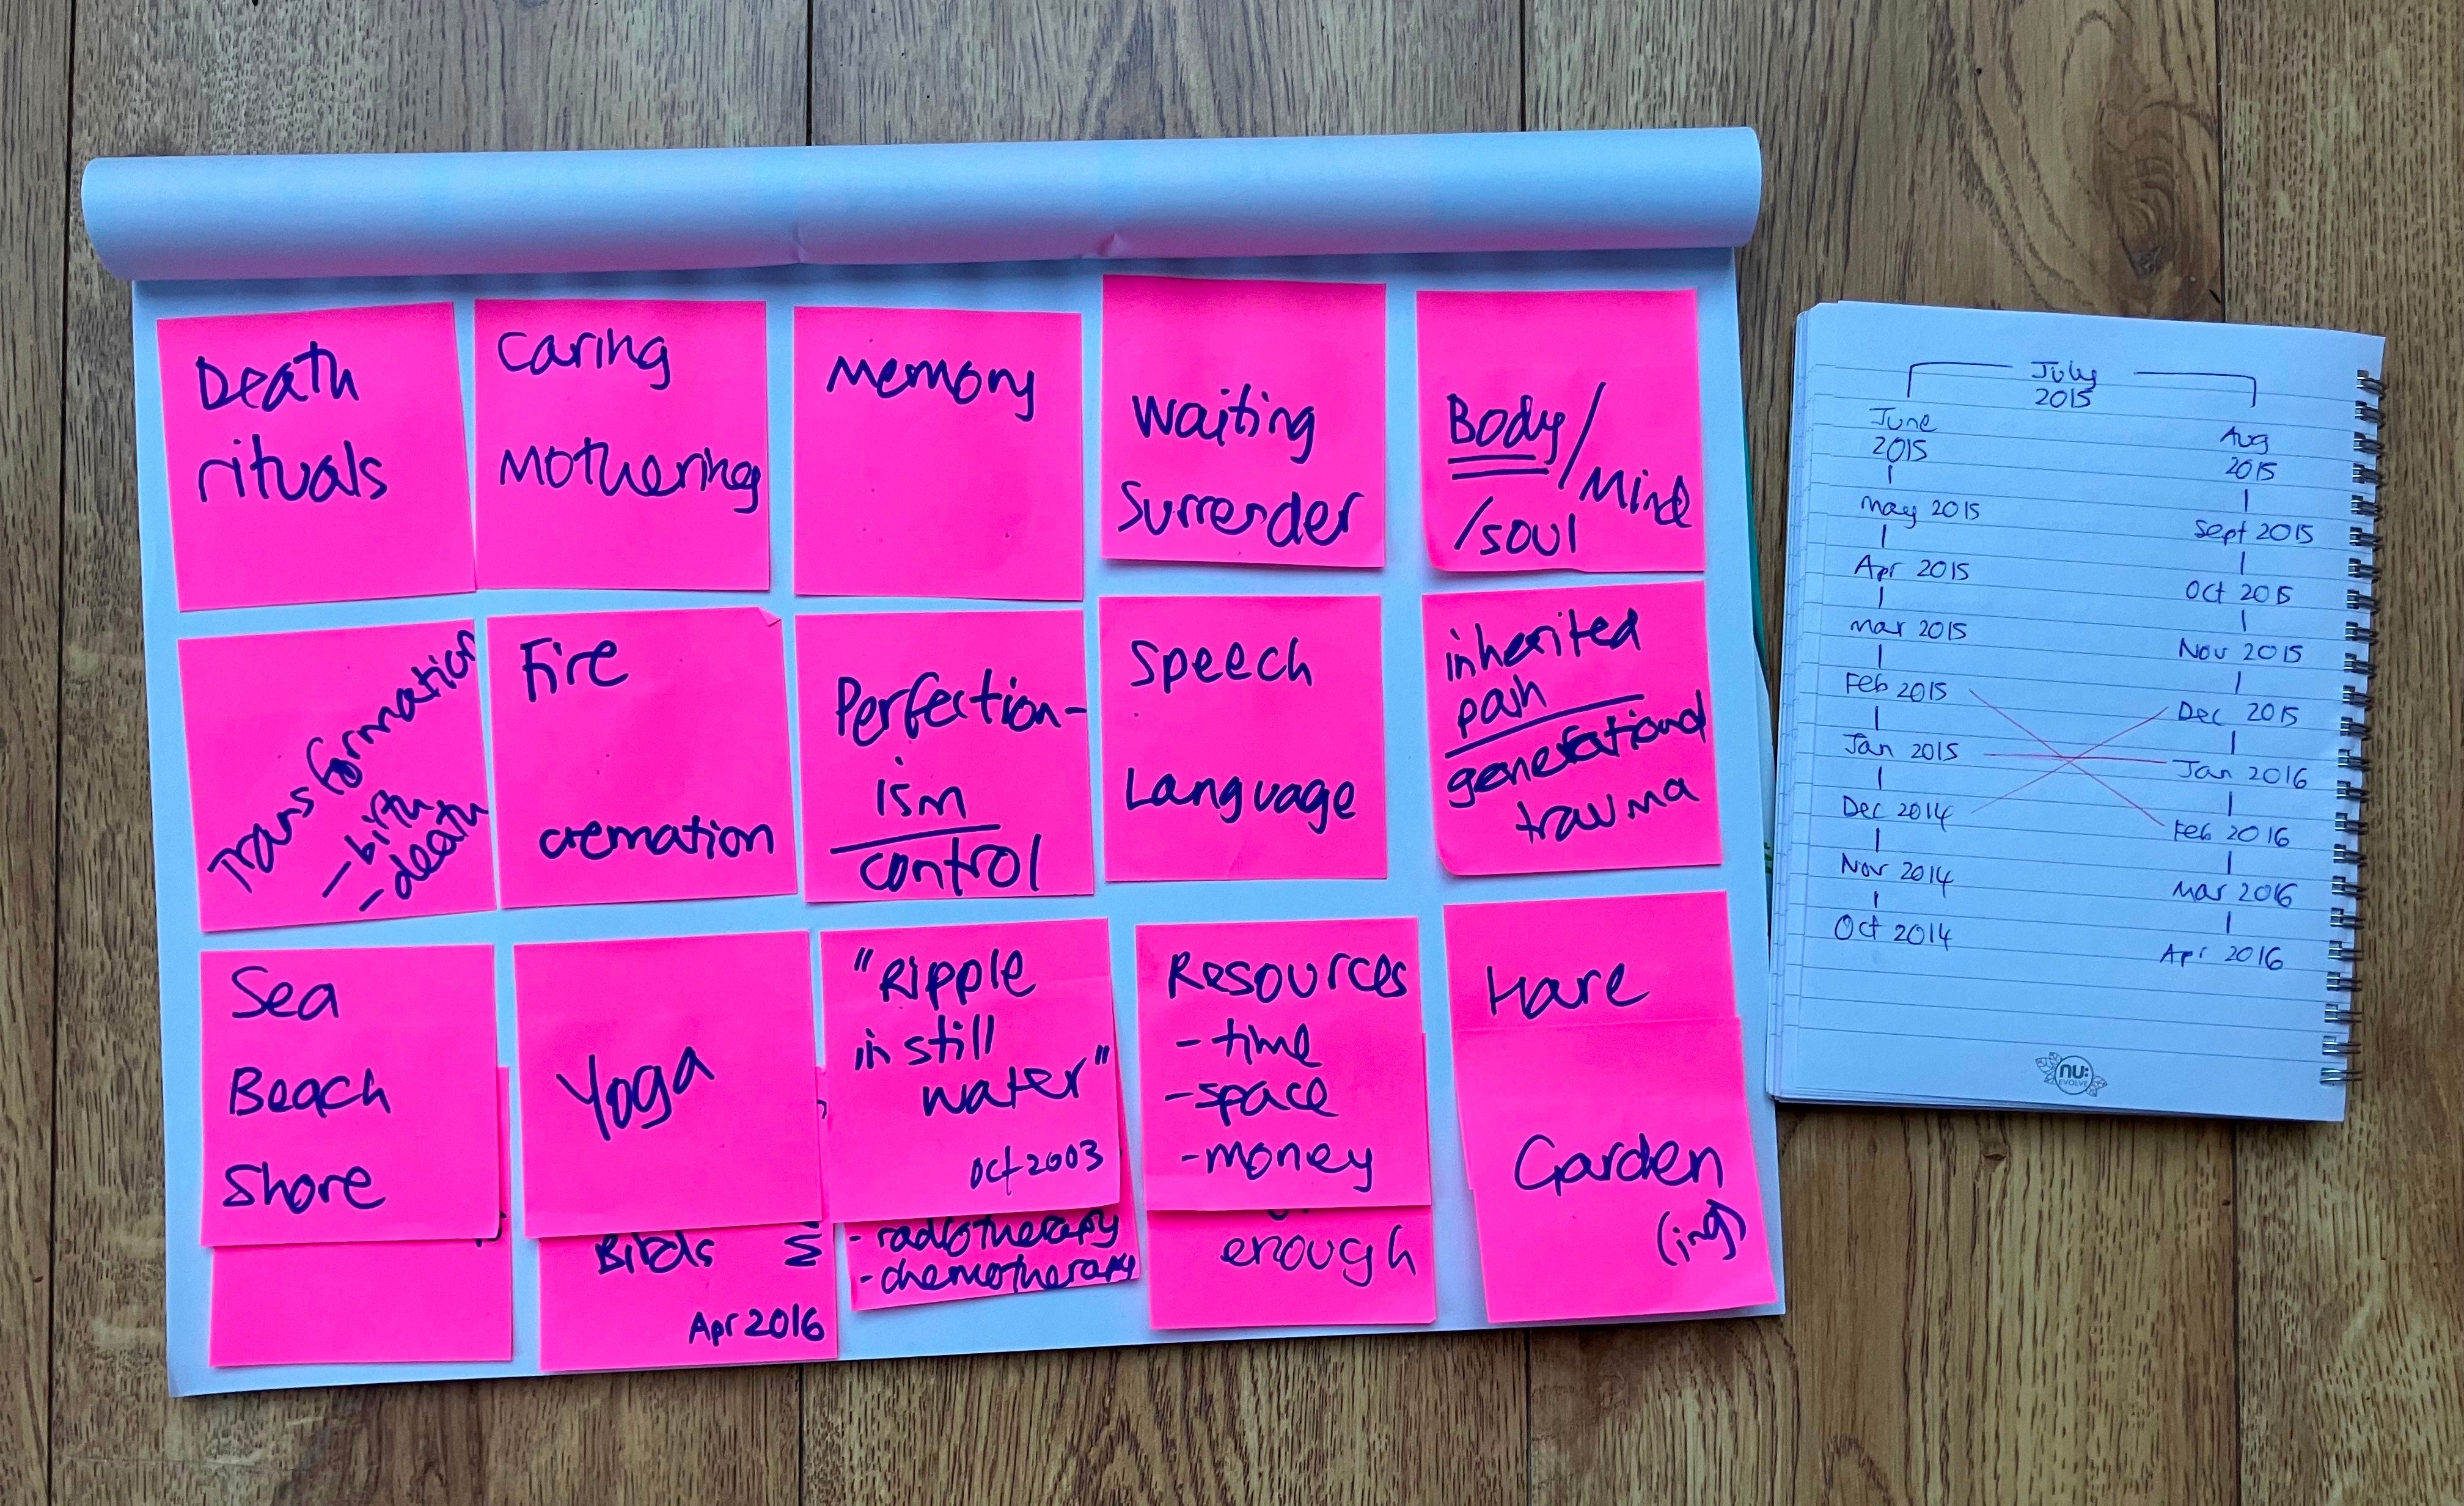 Death
rituals
Caring
Mothering
Memory
Waiting
Surrender
Body/
Mind
/soul
Transformation
- birth
- death
Fire
cremation
Perfection-
ism
control
Speech
Language
inherited
pain
generational
trauma
Sea
Beach
Shore
Yoga
Birds
Apr 2016
"Ripple
in still
water"
Oct 2003
- radiotherapy
- chemotherapy
Resources
- time
- space
- money
enough
Hare
Garden
(ing)
July
2015
June
2015
May 2015
Apr 2015
Mar 2015
Feb 2015
Jan 2015
Dec 2014
Nov 2014
Oct 2014
Aug
2015
Sept 2015
Oct 2015
Nov 2015
Dec 2015
Jan 2016
Feb 2016
Mar 2016
Apr 2016
nu:
EVOLVE